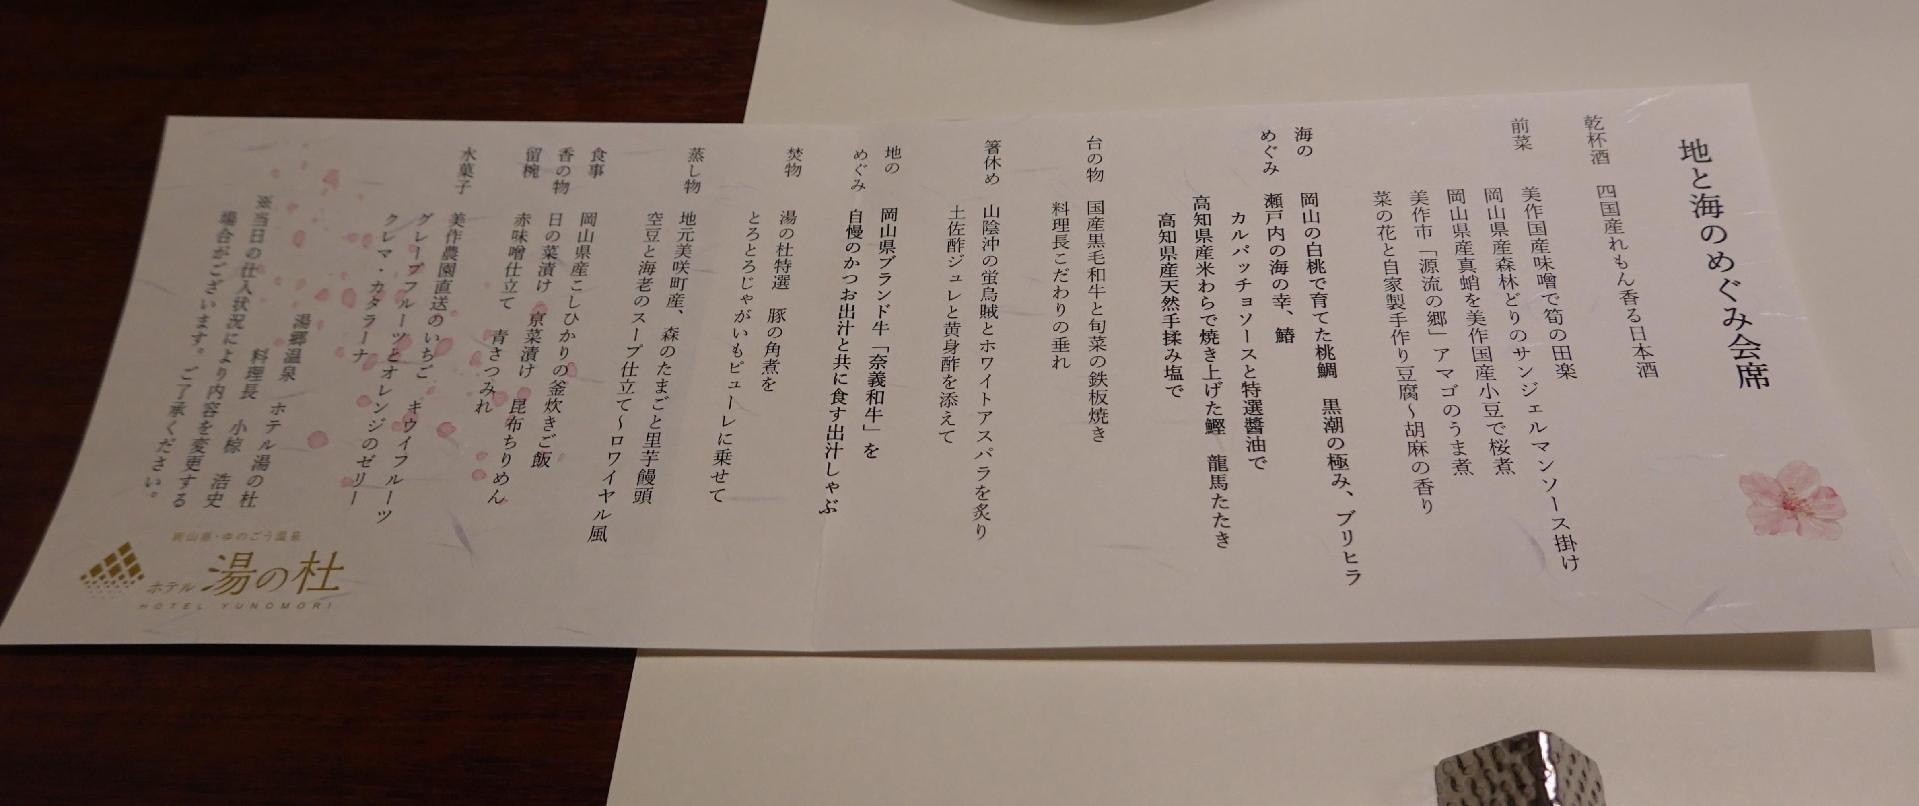 地と海のめぐみ会席
乾杯酒　四国産れもん香る日本酒
前菜　美作国産味噌で筍の田楽
岡山県産森林どりのサンジェルマンソース掛け
岡山県産真蛸を美作国産小豆で桜煮
美作市「源流の郷」アマゴのうま煮
菜の花と自家製手作り豆腐～胡麻の香り
海の　岡山の白桃で育てた桃鯛　黒潮の極み、ブリヒラ
めぐみ　瀬戸内の海の幸、鰆
カルパッチョソースと特選醬油で
高知県産米わらで焼き上げた鰹　龍馬たたき
高知県産天然手揉み塩で
台の物　国産黒毛和牛と旬菜の鉄板焼き
料理長こだわりの垂れ
箸休め　山陰沖の蛍烏賊とホワイトアスパラを炙り
土佐酢ジュレと黄身酢を添えて
地の　岡山県ブランド牛「奈義和牛」を
めぐみ　自慢のかつお出汁と共に食す出汁しゃぶ
焚物　湯の杜特選　豚の角煮を
とろとろじゃがいもピューレに乗せて
蒸し物　地元美咲町産、森のたまごと里芋饅頭
空豆と海老のスープ仕立て～ロワイヤル風
食事　岡山県産こしひかりの釜炊きご飯
香の物　日の菜漬け　京菜漬け　昆布ちりめん
留椀　赤味噌仕立て　青さつみれ
水菓子　美作農園直送のいちご　キウイフルーツ
グレープフルーツとオレンジのゼリー
クレマ・カタラーナ
湯郷温泉　ホテル湯の杜
料理長　小椋　浩史
※当日の仕入状況により内容を変更する
場合がございます。ご了承ください。
岡山県・ゆのごう温泉
ホテル 湯の杜
HOTEL YUNOMORI